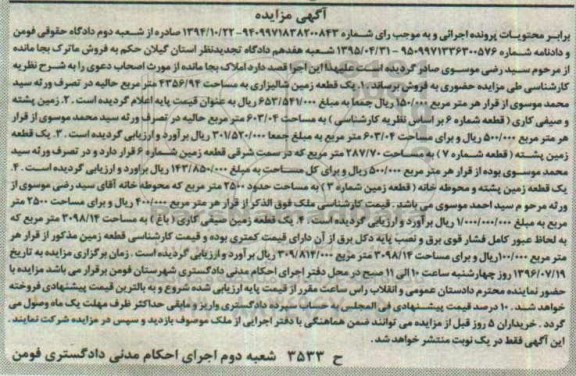 آگهی مزایده
برابر محتویات پرونده اجرائی و به موجب رای شماره ۹۴۰۹۹۷۱۸۳۸۲۰۰۸۴۳-۱۳۹۴/۱۰/۲۲ صادره از شعبه دوم دادگاه حقوقی فومن
و دادنامه شماره ۹۵۰۹۹۷۱۳۳۶۳۰۰۵۷۶-۱۳۹۵/۰۴/۳۱ شعبه هفدهم دادگاه تجدیدنظر استان گیلان حکم به فروش ماترک بجا مانده
از مرحوم سید رضی موسوی صادر گردیده است علیهذا این اجرا قصد دارد املاک بجا مانده از مورث اصحاب دعوی را به شرح نظریه
کارشناسی طی مزایده حضوری به فروش برساند. ۱. یک قطعه زمین شالیزاری به مساحت ۴۳۵۶/۹۴ متر مربع حالیه در تصرف ورثه سید
محمد موسوی از قرار هر متر مربع ۱۵۰/۰۰۰ ریال جمعا به مبلغ ۶۵۳/۵۴۱/۰۰۰ ریال به عنوان قیمت پایه اعلام گردیده است. ۲. زمین پشته
و صیفی کاری (قطعه شماره ۶ بر اساس نظریه کارشناسی) به مساحت ۶۰۳/۰۴ متر مربع حالیه در تصرف ورثه سید محمد موسوی از قرار
هر متر مربع ۵۰۰/۰۰۰ ریال و برای مساحت ۶۰۳/۰۴ متر مربع به مبلغ جمعا ۳۰۱/۵۲۰/۰۰۰ ریال برآورد و ارزیابی گردیده است. ۳. یک قطعه
زمین پشته (قطعه شماره ۷) به مساحت ۲۸۷/۷۰ متر مربع که در سمت شرقی قطعه زمین شماره ۶ قرار دارد و در تصرف ورثه سید
محمد موسوی بوده از قرار هر متر مربع ۵۰۰/۰۰۰ ریال و برای کل مساحت به مبلغ ۱۴۳/۸۵۰/۰۰۰ ریال برآورد و ارزیابی گردیده است. ۴.
یک قطعه زمین پشته و محوطه خانه (قطعه زمین شماره ۳) به مساحت حدود ۲۵۰۰ متر مربع که محوطه خانه آقای سید رضی موسوی از
ورثه مرحوم سید احمد موسوی می باشد. قیمت کارشناسی ملک فوق الذکر از قرار هر متر مربع ۴۰۰/۰۰۰ ریال و برای مساحت ۲۵۰۰ متر
مربع به مبلغ ۱/۰۰۰/۰۰۰/۰۰۰ ریال برآورد و ارزیابی گردیده است. ۴. یک قطعه زمین صیفی کاری (باغ) به مساحت ۳۰۹۸/۱۴ متر مربع که
به لحاظ عبور کامل فشار قوی برق و نصب پایه دکل برق از آن دارای قیمت کمتری بوده و قیمت کارشناسی قطعه زمین مذکور از قرار هر
متر مربع ۱۰۰/۰۰۰ ریال و برای مساحت ۳۰۹۸/۱۴ متر مربع ۳۰۹/۸۱۴/۰۰۰ ریال برآورد و ارزیابی گردیده است. زمان برگزاری مزایده به تاریخ
۱۳۹۶/۰۷/۱۹ روز چهارشنبه ساعت ۱۰ الی ۱۱ صبح در محل دفتر اجرای احکام مدنی دادگستری شهرستان فومن برقرار می باشد مزایده با
حضور نماینده محترم دادستان عمومی و انقلاب راس ساعت مقرر از قیمت پایه ارزیابی شده شروع و به بالاترین قیمت پیشنهادی فروخته
خواهد شد. ۱۰ درصد قیمت پیشنهادی فی المجلس به حساب سپرده دادگستری واریز و مابقی حداکثر ظرف مهلت یک ماه وصول می
گردد. خریداران ۵ روز قبل از مزایده می توانند ضمن هماهنگی با دفتر اجرایی از ملک موصوف بازدید و سپس در مزایده شرکت نمایند.
این آگهی فقط در یک نوبت منتشر خواهد شد.
ح ۳۵۳۳ شعبه دوم اجرای احکام مدنی دادگستری فومن